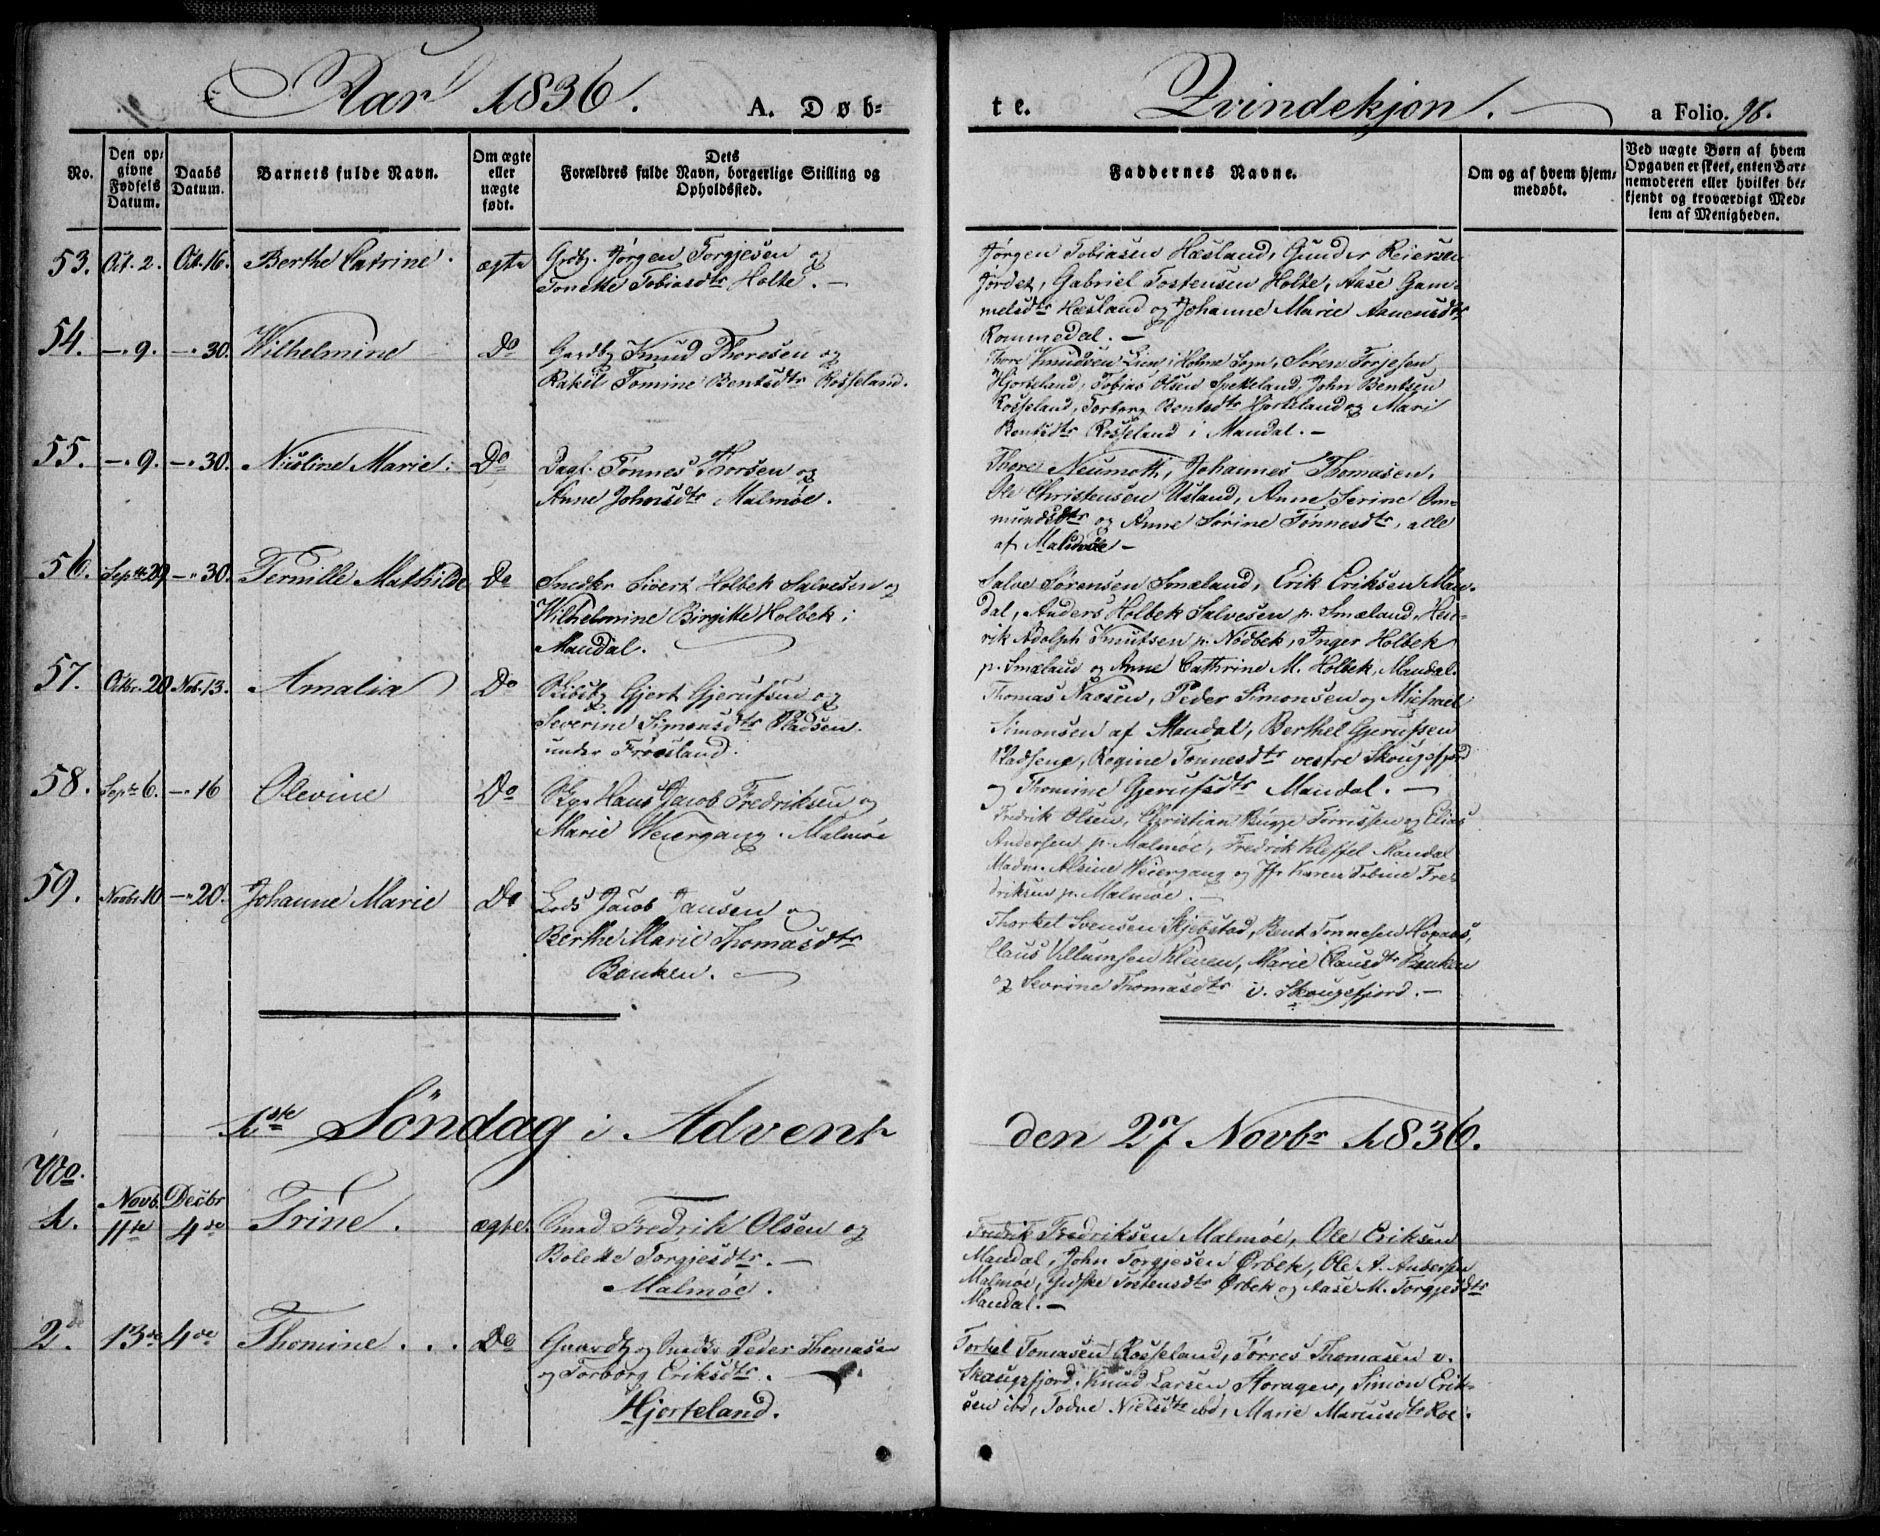 Aar 1836. A. Døb-
te. Qvindekjøn. a Folio. 98.
No.
Den op-
givne
Fødsels
Datum.
Daabs
Datum.
Barnets fulde Navn.
Om ægte
eller
uægte
født.
Dets
Forældres fulde Navn, borgerlige Stilling og
Opholdssted.
Faddernes Navne.
Om og af hvem hjem-
medøbt.
Ved uægte Børn af hvem
Opgaven er skeet, enten Bar-
nemoderen eller hvilket be-
kjendt og troværdigt Med-
lem af Menigheden.
53. Oct. 2. Oct. 16. Berthe Catrine. ægte
Grdbg. Jørgen Torgjesen og
Tonette Tobiasdtr Holte.
Jørgen Tobiasen Hæsland, Gunder Reiersen
Jordet, Gabriel Tostensen Holte, Aase Gam-
melsdtr Hæsland og Johanne Marie Aanensdtr
Rommedal.
54. 9. 30. Wilhelmine Do
Gaardbg Knud Thoresen og
Rakel Tomine Bentsdtr Rosseland.
Thore Knudsen Lien i Holme Sogn, Søren Torjesen
Hjorteland, Tobias Olsen Spekeland, John Bentsen
Rosseland, Torborg Bentsdtr Hjorteland og Mari
Bentsdtr Rosseland i Mandal.
55. 9. 30. Nilsine Marie: Do
Dagl. Tønnes Thorsen og
Anne Johnsdtr Malmøe.
Thore Neumoth, Johannes Thomasen,
Ole Christensen Usland, Anne Serine Om-
mundsdtr og Anne Sørine Tønnesdtr, alle
af Malmøe
56. Septbr 29 30. Pernille Mathilde Do
Snedkr Sivert Holbek Salvesen og
Wilhelmine Birgitte Holbek i
Mandal.
Salve Sørensen Smæland, Erik Eriksen Man-
dal, Anders Holbek Salvesen p. Smæland, Hen-
rik Adolph Knutsen p. Nødbek, Inger Holbek
p. Smæland og Anne Cathrine M. Holbek, Mandal.
57. Octbr. 20 Nov. 13. Amalia Do
Gjert Gjerufsen og
Severine Simonsdtr Pladsen
under Frøesland.
Thomas Naosen, Peder Simonsen og Michael
Simonsen af Mandal, Berthel Gjerufsen
Pladsene, Regine Tønnesdtr vestre Skougsfjord
og Thomine Gjerufsdtr Mandal.
58. Septr 6. 16 Olevine Do
Hans Jacob Fredriksen og
Marie Weiergang. Malmøe
Fredrik Olsen, Christian Bugge Tørrissen og Elias
Andersen p. Malmøe, Fredrik Kleffel Mandal
Madm. Alsine Weiergang og Jfr Karen Tobine Fre-
driksen p. Malmøe.
59. Novbr. 10 20. Johanne Marie Do
Lods Jacob Jansen og
Berthe Marie Thomasdtr
Banken.
Thorkel Svensen Skjebstad, Bent Tønnesen Hopnes,
Claus Villumsen Kleven, Marie Clausdtr Banken
og Severine Thomasdtr v. Skougsfjord.
1ste Søndag i Advent den 27 Novbr 1836.
No.
Novb. Decbr
1. 11te 4de Trine. ægte.
Smed Fredrik Olsen og
Bolette Torgjesdtr.
Malmøe.
Fredrik Fredriksen Malmøe, Ole Eriksen
Mandal, John Torgjesen Ørbek, Ole A. Andersen
Malmøe, Gidske Tostensdtr Ørbek og Aase M. Torgjesdtr
Mandal.
2de 13de 4de Thomine. . . Do
Gaardbg og Snedkr Peder Thomasen
og Torborg Eriksdtr.
Hjorteland.
Torkel Tomasen Rosseland, Tørres Thomasen v.
Skougsfjord, Knud Larsen Storager, Simon Erik-
sen ibd, Todne Nielsdtr ibd, Marie Marcusdtr Roe.